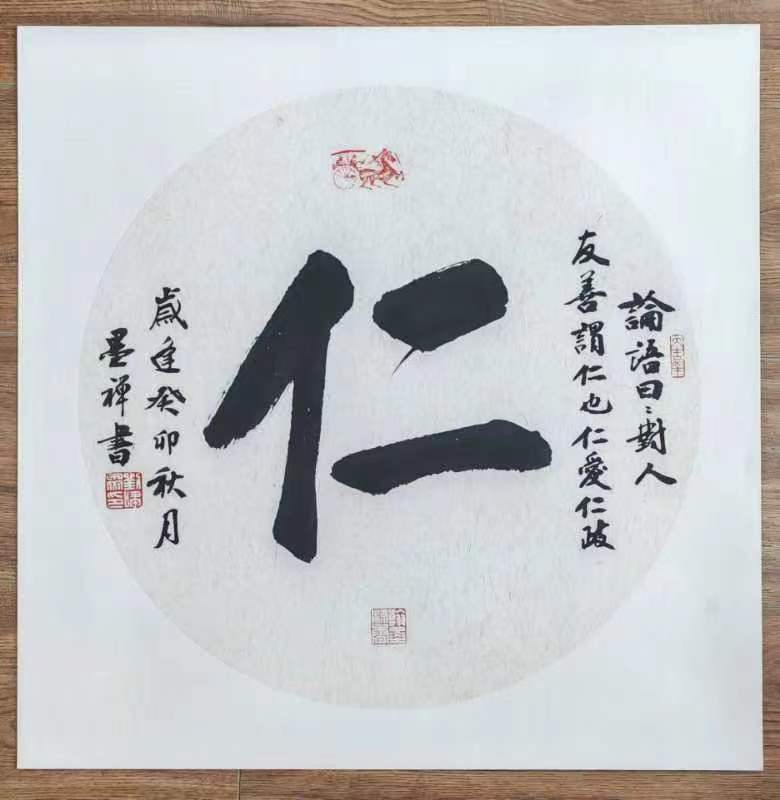 論語曰：對人
友善謂仁也仁愛仁政
仁
歲逢癸卯秋月
墨禅書